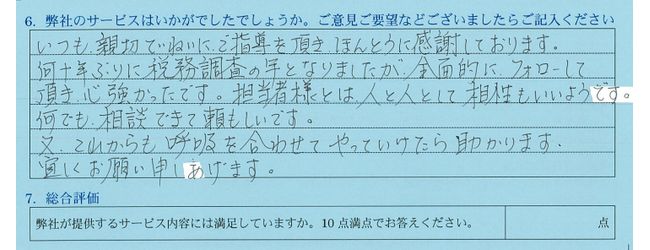 6. 弊社のサービスはいかがでしたでしょうか。ご意見ご要望などございましたらご記入ください
いつも、親切ていねいに、ご指導を頂き、ほんとうに感謝しております。
何十年ぶりに税務調査の年となりましたが、全面的に、フォローして
頂き、心強かったです。担当者様とは、人と人として、相性もいいようです。
何でも、相談できて頼もしいです。
又、これからも呼吸を合わせてやっていけたら助かります。
宜しくお願い申しあげます。
7. 総合評価
弊社が提供するサービス内容には満足していますか。10点満点でお答えください。 点